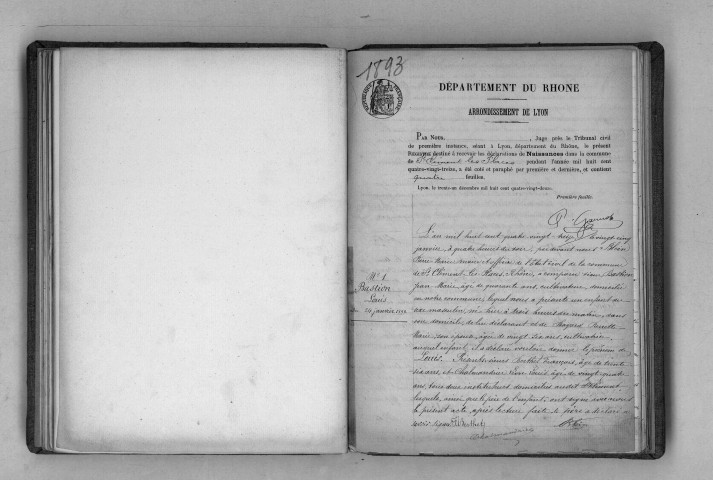 1893
DÉPARTEMENT DU RHONE
ARRONDISSEMENT DE LYON
PAR NOUS, , Juge près le Tribunal civil
de première instance, séant à Lyon, département du Rhône, le présent
REGISTRE destiné à recevoir les déclarations de Naissances dans la commune
de St Clément les Places pendant l'année mil huit cent
quatre-vingt-treize, a été coté et paraphé par première et dernière, et contient
feuilles.
Lyon, le trente-un décembre mil huit cent quatre-vingt-douze.
Première feuille.
L'an mil huit cent quatre vingt treize le vingt cinq
janvier à quatre heures du soir, par devant nous
Pierre Marie, maire et officier de l'état civil de la commune
de St Clément les Places, Rhône, a comparu sieur Bastion
Jean Marie, âgé de quarante ans, cultivateur, domicilié
en notre commune, lequel nous a présenté un enfant du
sexe masculin, né hier à trois heures du matin, dans
son domicile, de lui déclarant et de
Marie, son épouse, âgée de vingt six ans, cultivatrice,
auquel enfant il a déclaré vouloir donner le prénom de
Louis. Présents sieurs Berthet François, âgé de trente
six ans, et Louis, âgé de vingt
ans, tous deux instituteurs domiciliés audit St Clément
lesquels, ainsi que le père de l'enfant, ont signé avec nous
le présent acte après lecture faite, le père a déclaré ne
savoir signer.
N° 1
Bastion
Louis
24 janvier 1893